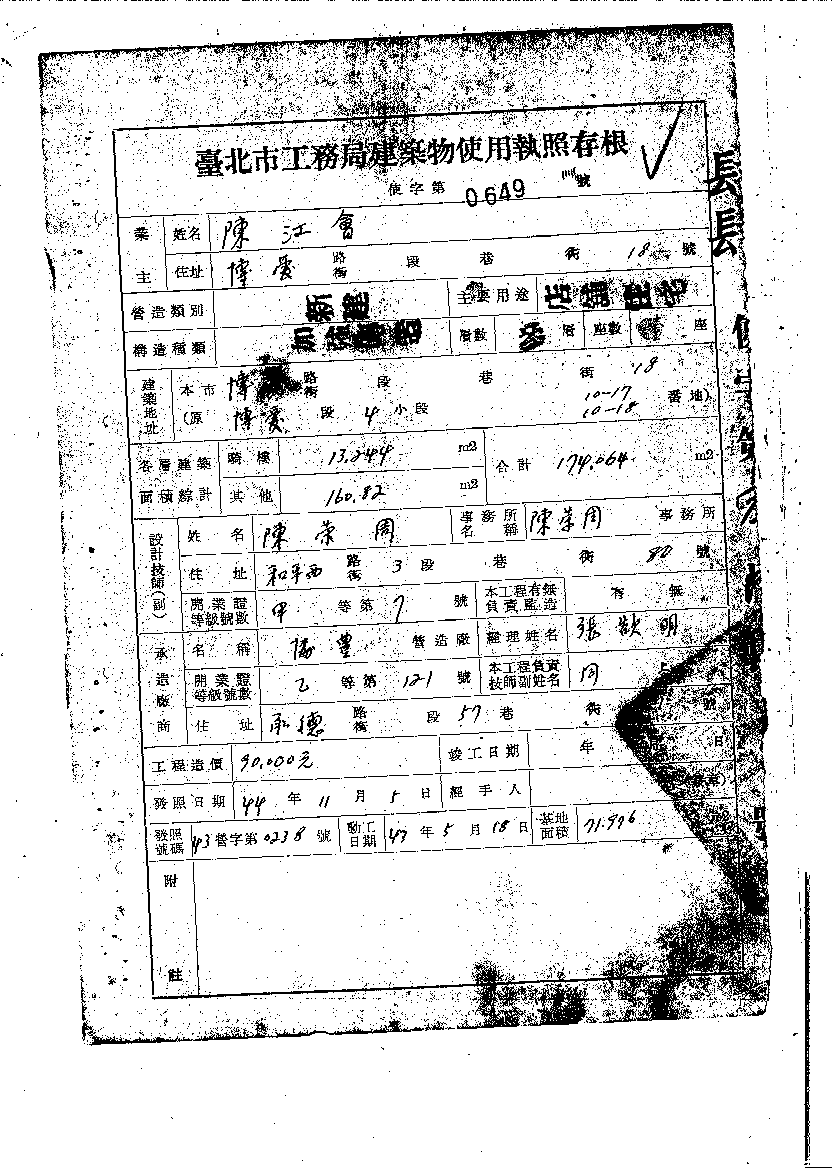 臺北市工務局建築物使用執照存根
使字第0649號
業主 姓名 陳江會
住址 博愛 路街 段 巷 街 18 號
營造類別 新建 主要用途 店舖住宅
構造種類 加強磚造 層數 層 座數 座
建築地址 本市 博 路街 段 巷 街 18
(原 博愛 段 4 小段 10-17 10-18 番地)
各層建築面積綜計 騎樓 13.244 m2 合計 174.064 m2
其他 160.82 m2
設計技師(副) 姓名 陳榮周 事務所名稱 陳榮周 事務所
住址 和平西 路街 3 段 巷 街 80 號
開業證等級號數 甲 等第 7 號 本工程有無負責監造 有 無
承造廠商 名稱 豐 營造廠 經理姓名 張 明
開業證等級號數 乙 等第 121 號 本工程負責技師副姓名 周
住址 承德 路街 段 57 巷 街 號
工程造價 90,000元 竣工日期 年 日
發照日期 44 年 11 月 5 日 經手人
發照號碼 43營字第0238號 動工日期 43 年 5 月 18 日 基地面積 71.976
附註
長
長